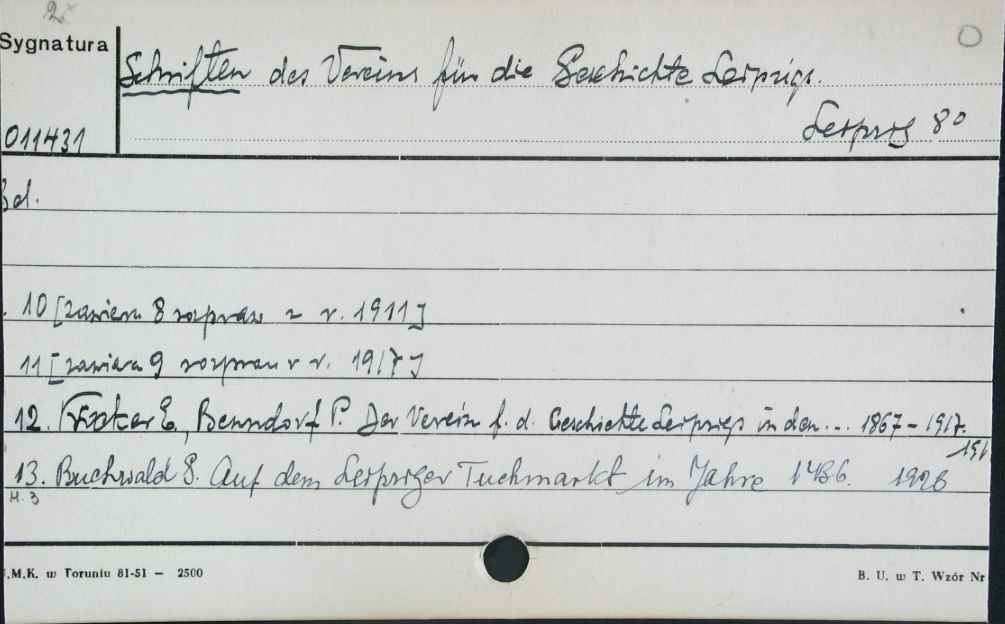 2x
Sygnatura
Schriften des Vereins für die Geschichte Leipzigs.
Leipzig 8°
011431
Bd.
10 [zawiera 8 rozpraw z r. 1911]
11 [zawiera 9 rozpraw z r. 1917]
12. E., Benndorf P. Der Verein f. d. Geschichte Leipzigs in den... 1867-1917.
191
13. Buchwald G. Auf dem Leipziger Tuchmarkt im Jahre 1486. 1926
H. 3
.M.K. w Toruniu 81-51 — 2500
B. U. w T. Wzór Nr